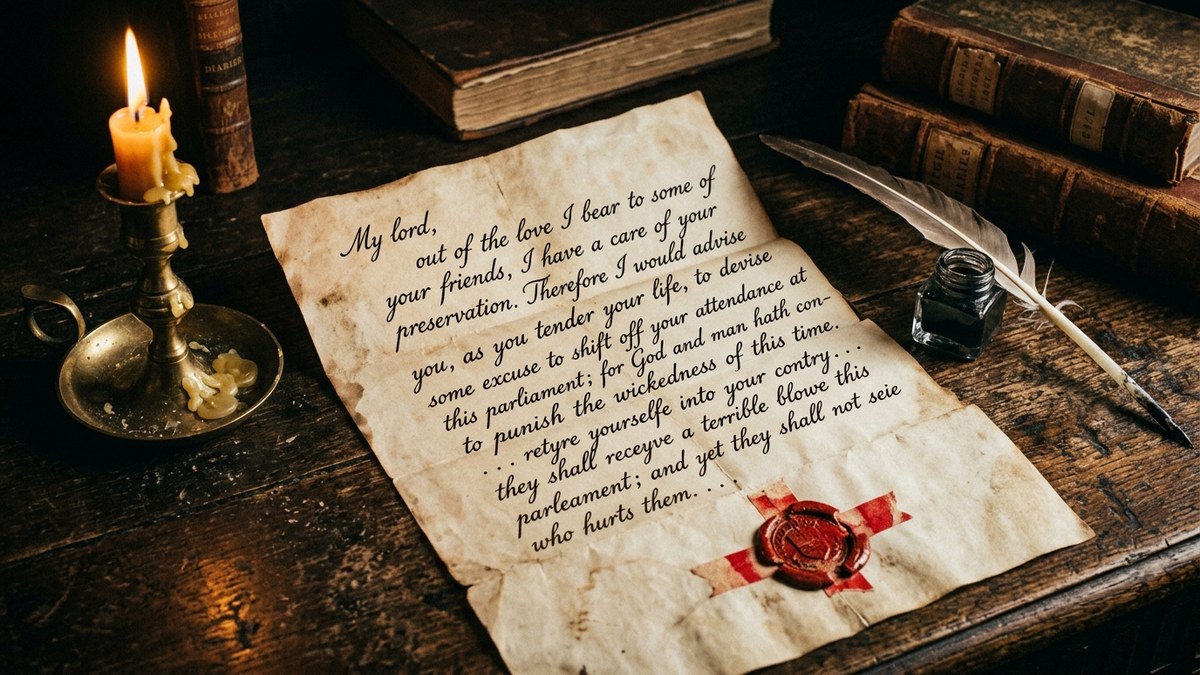 My lord,
out of the love I bear to some of
your friends, I have a care of your
preservation. Therefore I would advise
you, as you tender your life, to devise
some excuse to shift off your attendance at
this parliament; for God and man hath con-
to punish the wickedness of this time.
... retyre yourselfe into your contry...
they shall receyve a terrible blowe this
parleament; and yet they shall not seie
who hurts them...
DIARIES